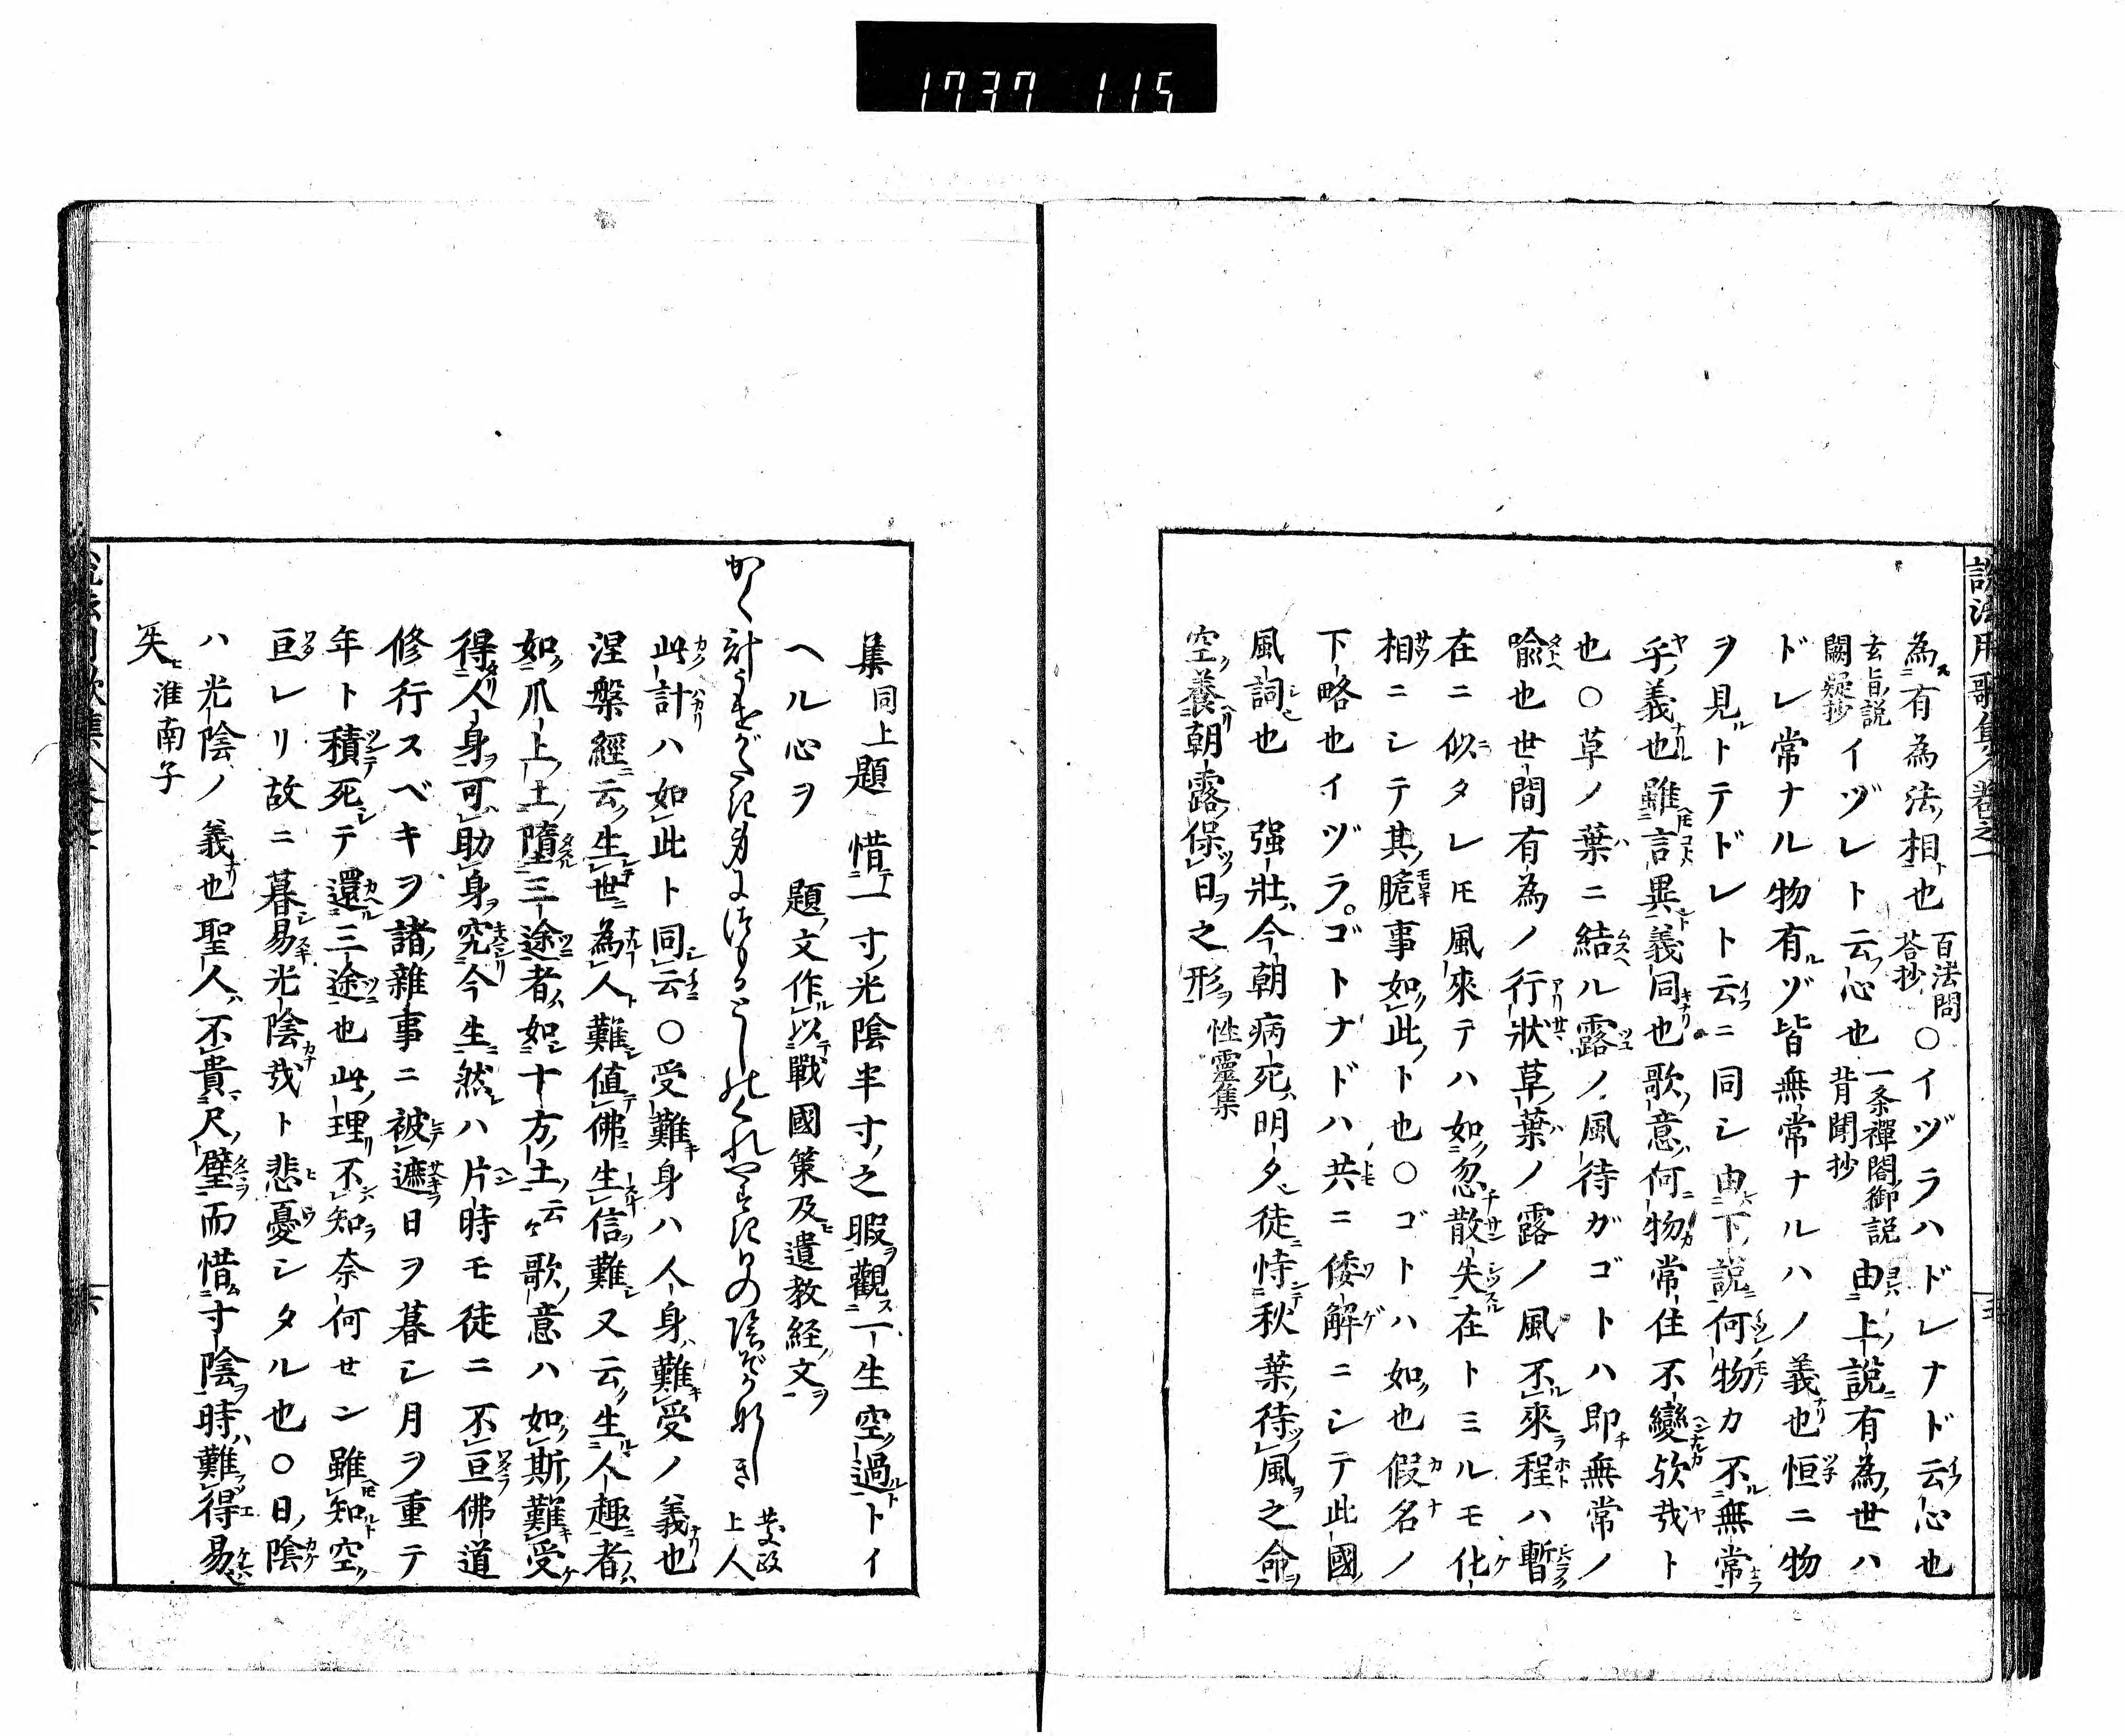 1737 115
説法用歌集 巻之一
為有為法相也 百法問答抄 ○イヅラハドレナド云心也
玄旨説 闕疑抄 イヅレト云心也 一条禪閤御説 肖聞抄 由上説有為世ハ
ドレ常ナル物有ゾ皆無常ナルハノ義也恒ニ物
ヲ見トテドレト云ニ同シ由下説何物カ不無常
乎義也雖言異義同也歌意何物常住不變欤哉ト
也○草ノ葉ニ結ル露ノ風待ガゴトハ即無常ノ
喩也世間有為ノ行狀草葉ノ露ノ風不來程ハ暫
在ニ似タレ𪜈風來テハ如忽散失在トミルモ化
相ニシテ其脆事如此ト也○ゴトハ如也假名ノ
下略也イヅラゴトナドハ共ニ倭解ニシテ此國
風詞也 强壯今朝病死明夕徒恃秋葉待風之命
空養朝露保日之形 性靈集
集 同上題 惜一寸光陰半寸之暇觀一生空過トイ
ヘル心ヲ 題文作以戰國策及遺教経文
かく計うけがたき身にほもらとしれくれやすき日の陰ぞかなしき 慈政上人
此計ハ如此ト同云○受難身ハ人身難受ノ義也
涅槃經云生世為人難值佛生信難又云生人趣者
如爪上土墮三途者如十方土云々歌意ハ如斯難受
得人身可助身究今生然ハ片時モ徒ニ不亘佛道
修行スベキヲ諸雜事ニ被遮日ヲ暮シ月ヲ重テ
年ト積死シテ還三途也此理不知奈何セン雖知空
亘レリ故ニ暮易光陰哉ト悲憂シタル也○日陰
ハ光陰ノ義也聖人不貴尺璧而惜寸陰時難得易
失 淮南子